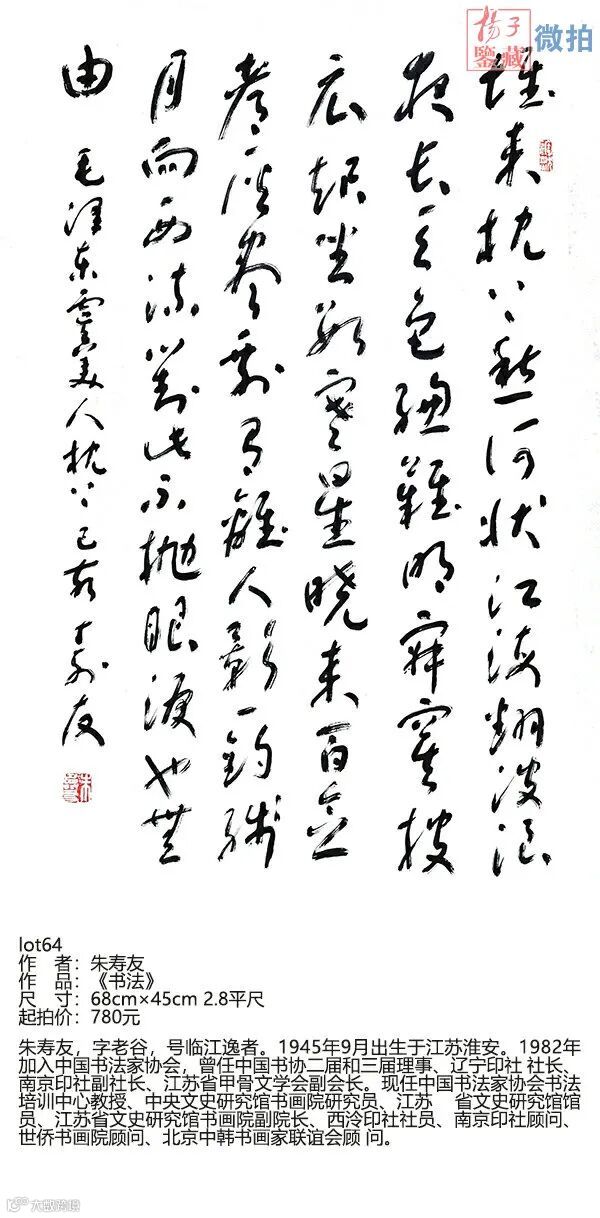 楊子
鑒藏
微拍
堆来枕上愁何状江海翻波浪
夜长天色總難明寂寞披
衣起坐数寒星曉来百念
都灰尽剩有離人影一鈎残
月向西流对此不抛眼淚也無
由
毛泽东虞美人枕上己亥寿友
lot64
作　者：朱寿友
作　品：《书法》
尺　寸：68cm×45cm 2.8平尺
起拍价：780元
朱寿友，字老谷，号临江逸者。1945年9月出生于江苏淮安。1982年
加入中国书法家协会，曾任中国书协二届和三届理事、辽宁印社 社长、
南京印社副社长、江苏省甲骨文学会副会长。现任中国书法家协会书法
培训中心教授、中央文史研究馆书画院研究员、江苏　省文史研究馆馆
员、江苏省文史研究馆书画院副院长、西泠印社社员、南京印社顾问、
世侨书画院顾问、北京中韩书画家联谊会顾 问。
大数跨境